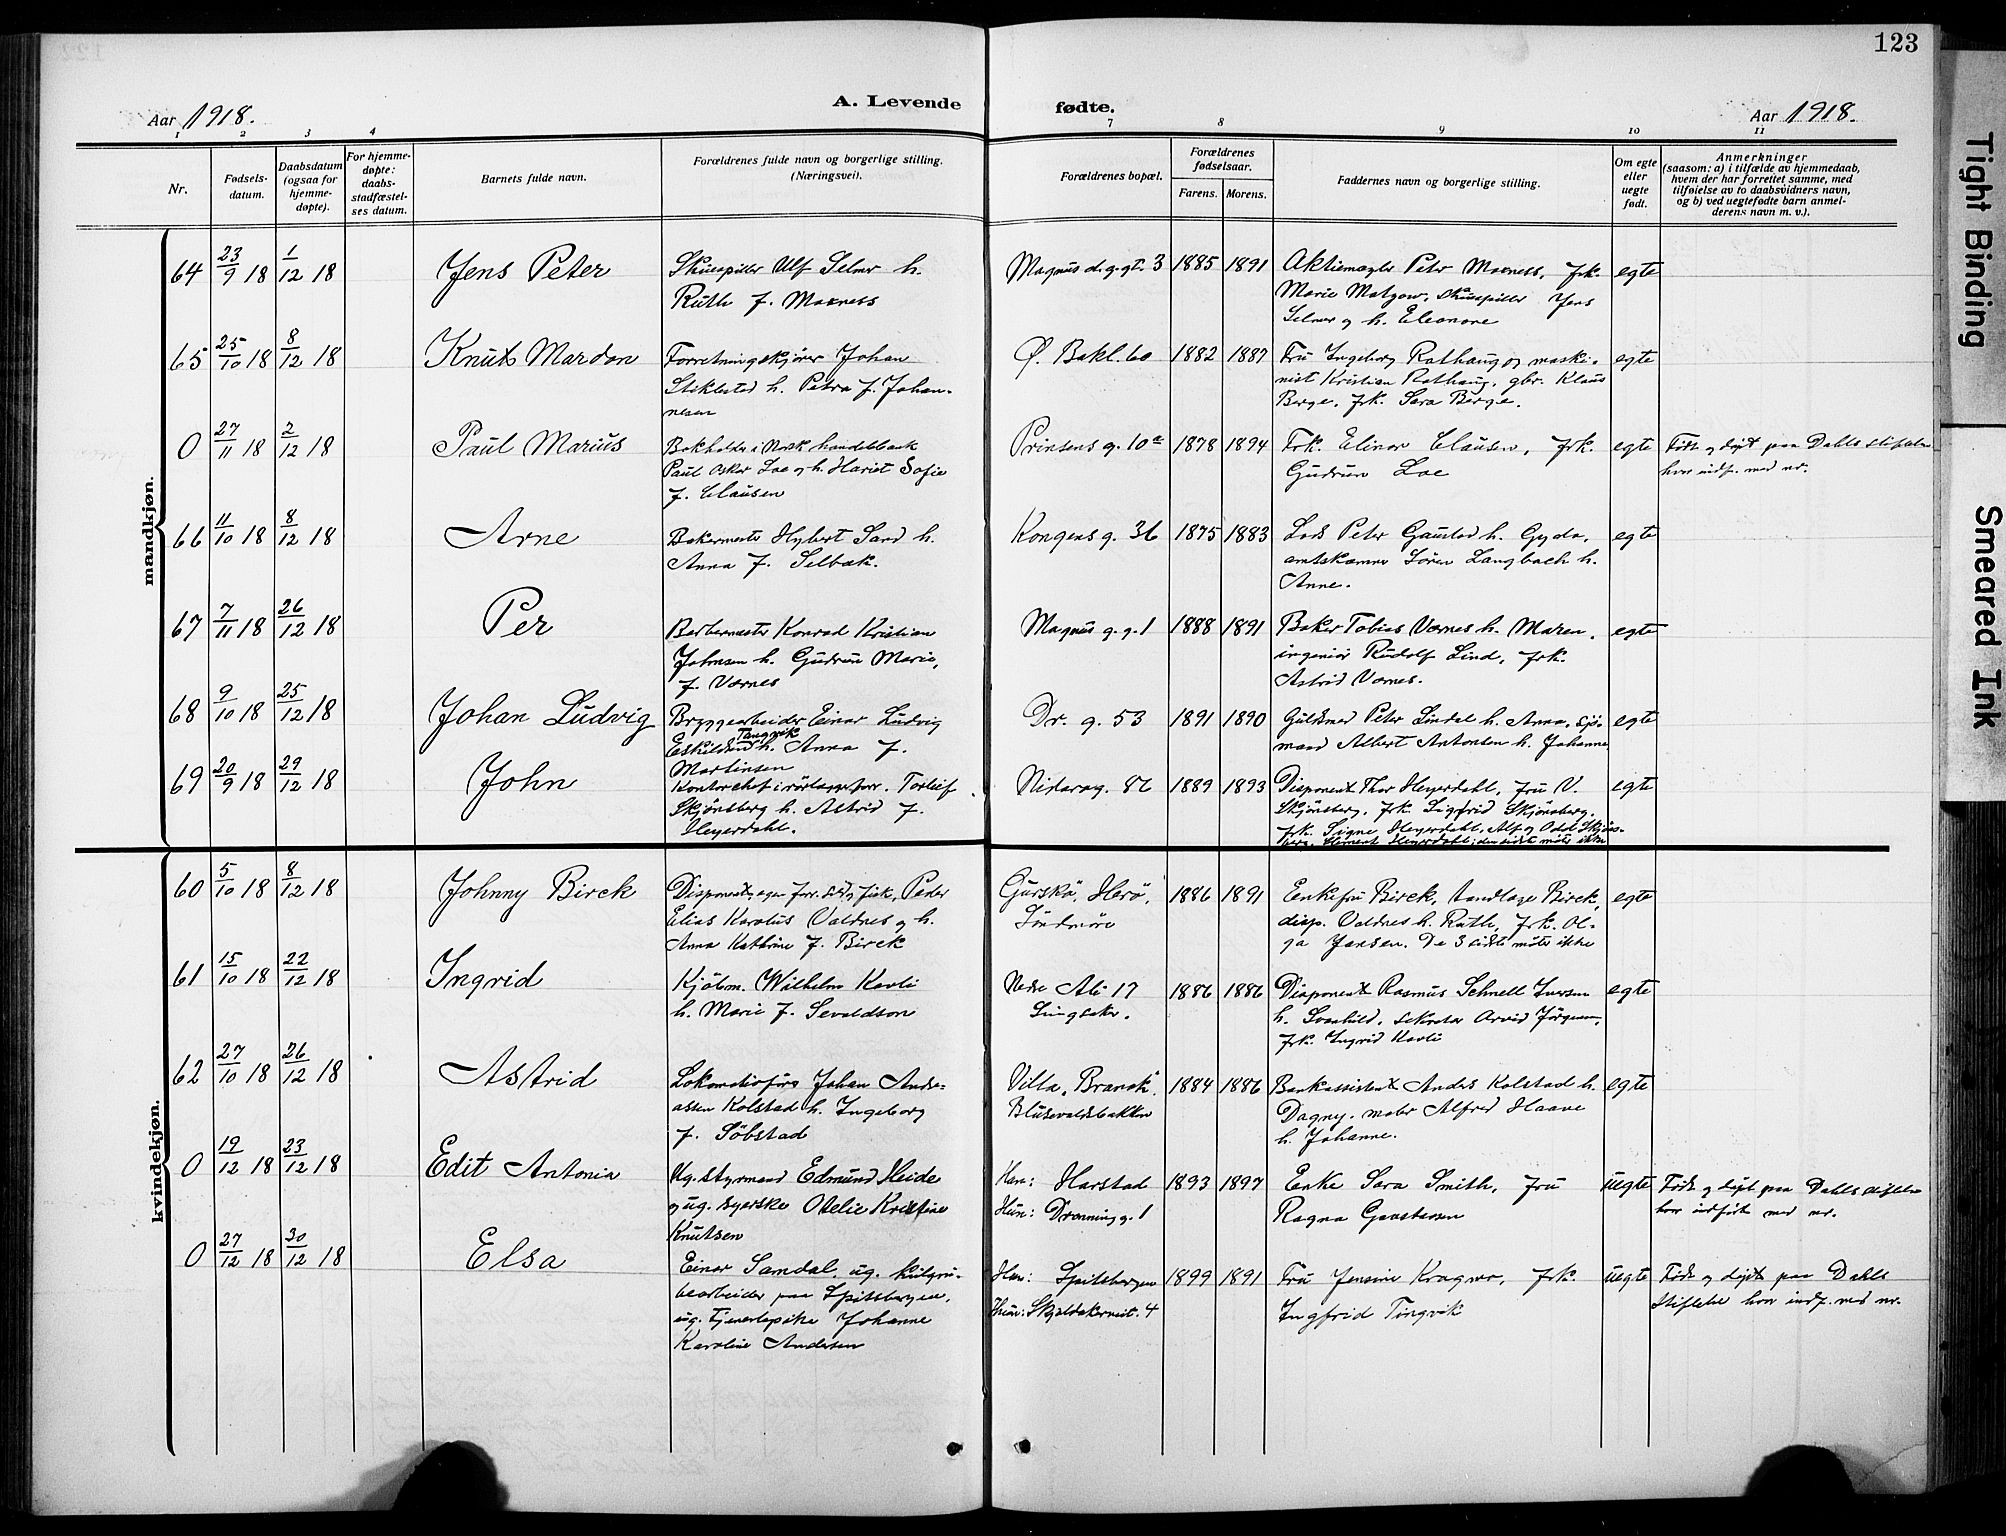 123
A. Levende fødte.
Aar 1918.
Aar 1918.
1 2 3 4 7 8 9 10 11
Nr.
Fødsels-
datum.
Daabsdatum
(ogsaa for
hjemme-
døpte).
For hjemme-
døpte:
daabs-
stadfæstel-
ses datum.
Barnets fulde navn.
Forældrenes fulde navn og borgerlige stilling.
(Næringsvei).
Forældrenes bopæl.
Forældrenes
fødselsaar.
Farens. Morens.
Faddernes navn og borgerlige stilling.
Om egte
eller
uegte
født.
Anmerkninger
(saasom: a) i tilfælde av hjemmedaab,
hvem der har forrettet samme, med
tilføielse av to daabsvidners navn,
og b) ved uegtefødte barn anmel-
derens navn m. v.).
mandkjøn.
64 23/9 18 1/12 18 Jens Peter
Skuespiller Ulf Selmer h.
Ruth f.
Magnus d. g. gt. 3 1885 1891
Aktiemægler Peter frk.
Marie skuespiller Jens
Selmer og h. Eleonore
egte
65 25/10 18 8/12 18 Knut Mardon
Forretningskjører Johan
Stiklestad h. Petra f. Johan-
nesen
Ø. Bakl. 60 1882 1887
Fru Ingeborg Rathaug og maski-
nist Kristian Rathaug, gbr. Klaus
Berge, frk. Sara Berge.
egte
0 27/11 18 2/12 18 Paul Marius
Bokholder i Norsk handelsbank
Paul Oskar Loe og h. Hariet Sofie
f. Clausen
Prinsens g. 10a 1878 1894
Frk. Elinor Clausen, frk.
Gudrun Loe
egte
Født og døpt paa Dahls stiftelse
hvor indf. med nr.
66 11/10 18 8/12 18 Arne
Bakermester Hybert Sand h.
Anna f. Selbæk.
Kongens g. 36 1875 1883
Lods Peter Gaustad h. Gyda,
amtskæmner Søren Langbach h.
Anne.
egte
67 7/11 18 26/12 18 Per
Barbermester Konrad Kristian
Johnsen h. Gudrun Marie,
f. Værnes
Magnus g. g. 1 1888 1891
Baker Tobias Værnes h. Maren,
ingeniør Rudolf Lind, frk.
Astrid Værnes.
egte
68 9/10 18 25/12 18 Johan Ludvig
Bryggearbeider Einar Ludvig
Eskildsen Tangvik h. Anna f.
Martinsen
Dr. g. 53 1891 1890
Guldsmed Peter Lindal h. Anna, sjø-
mand Albert Antonsen h. Johanne
egte
69 20/9 18 29/12 18 John
Kontorchef i Torleif
Skjønsberg h. Astrid f.
Heyerdahl.
Nidarøg. 8b 1889 1893
Disponent Thor Heyerdahl, fru V.
Skjønsberg, frk. Sigfrid Skjønsberg,
frk. Signe Heyerdahl, Alf og Odd Skjøns-
berg, Klement Heyerdahl; den sidste møtte ikke
egte
kvindekjøn.
60 5/10 18 8/12 18 Johnny Birck
Disponent, egen forr. sild og fisk, Peder
Elias Karolus Valdnes og h.
Anna Kathrine f. Birck
Gurskø, Herø,
Søndmøre
1886 1891
Enkefru Birck, tandlæge Birck,
disp. Valdnes h. Ruth, frk. Ol-
ga Jansen. De 3 sidste møtte ikke
egte
61 15/10 18 22/12 18 Ingrid
Kjøbm. Wilhelm Kavli
h. Marie f. Sevaldson
Nedre Ale 17
Singsaker.
1886 1886
Disponent Rasmus Schnell Iversen
h. Svanhild, sekretær Arvid Jørgensen,
frk. Ingrid Kavli
egte
62 27/10 18 26/12 18 Astrid
Lokomotivfører Johan Andre-
assen Kolstad h. Ingeborg
f. Søbstad
Villa
Blusevoldsbakken
1884 1886
Bankassistent Anders Kolstad h.
Dagny, maler Alfred Haave
h. Johanne.
egte
0 19/12 18 23/12 18 Edit Antonia
Ug. styrmand Edmund Heide
og ug. syerske Otelie Kristine
Knutsen
Han: Harstad
Hun: Dronning g. 1
1893 1897
Enke Sara Smith, fru
Ragna Gustavsen
uegte
Født og døpt paa Dahls stiftelse
hvor indført med nr.
0 27/12 18 30/12 18 Elsa
Einar Samdal, ug. kulgru-
bearbeider paa Spitsbergen,
ug. tjenestepike Johanne
Karoline Andersen
Han: Spitsbergen
Hun: Skjoldakerveit. 4
1899 1891
Fru Jensine Kragmo, frk.
Ingfrid Tingvik
uegte
Født og døpt paa Dahls
Stiftelse hvor indf. med nr.
Tight Binding
Smeared Ink